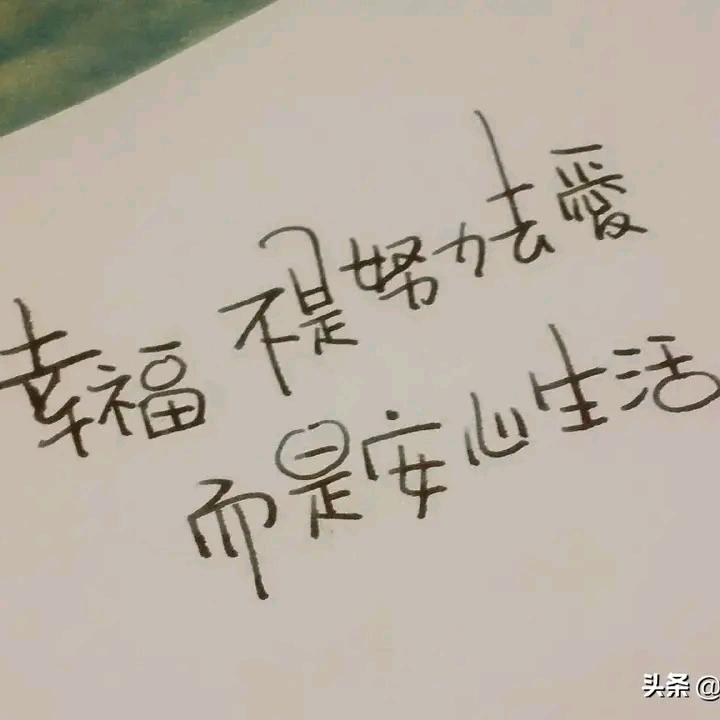 幸福 不是努力去愛
而是安心生活
头条 @